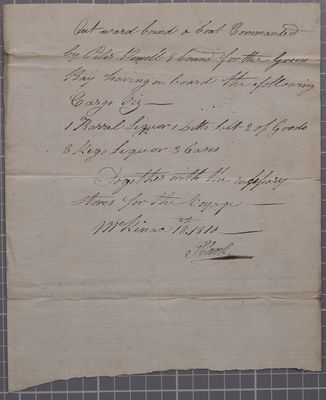 Out ward bound a boat Commanded
by Peter Powell & bound for the Green
Bay having on board the following
Cargo Viz —
1 Barrel Liquor 1 Ditto Salt 2 of Goods
3 Kegs Liquor 3 Cases
Together with the necessary
Stores for the Voyage —
McKinac 1810